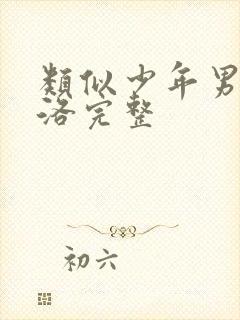 類似少年男
洛完整
初六